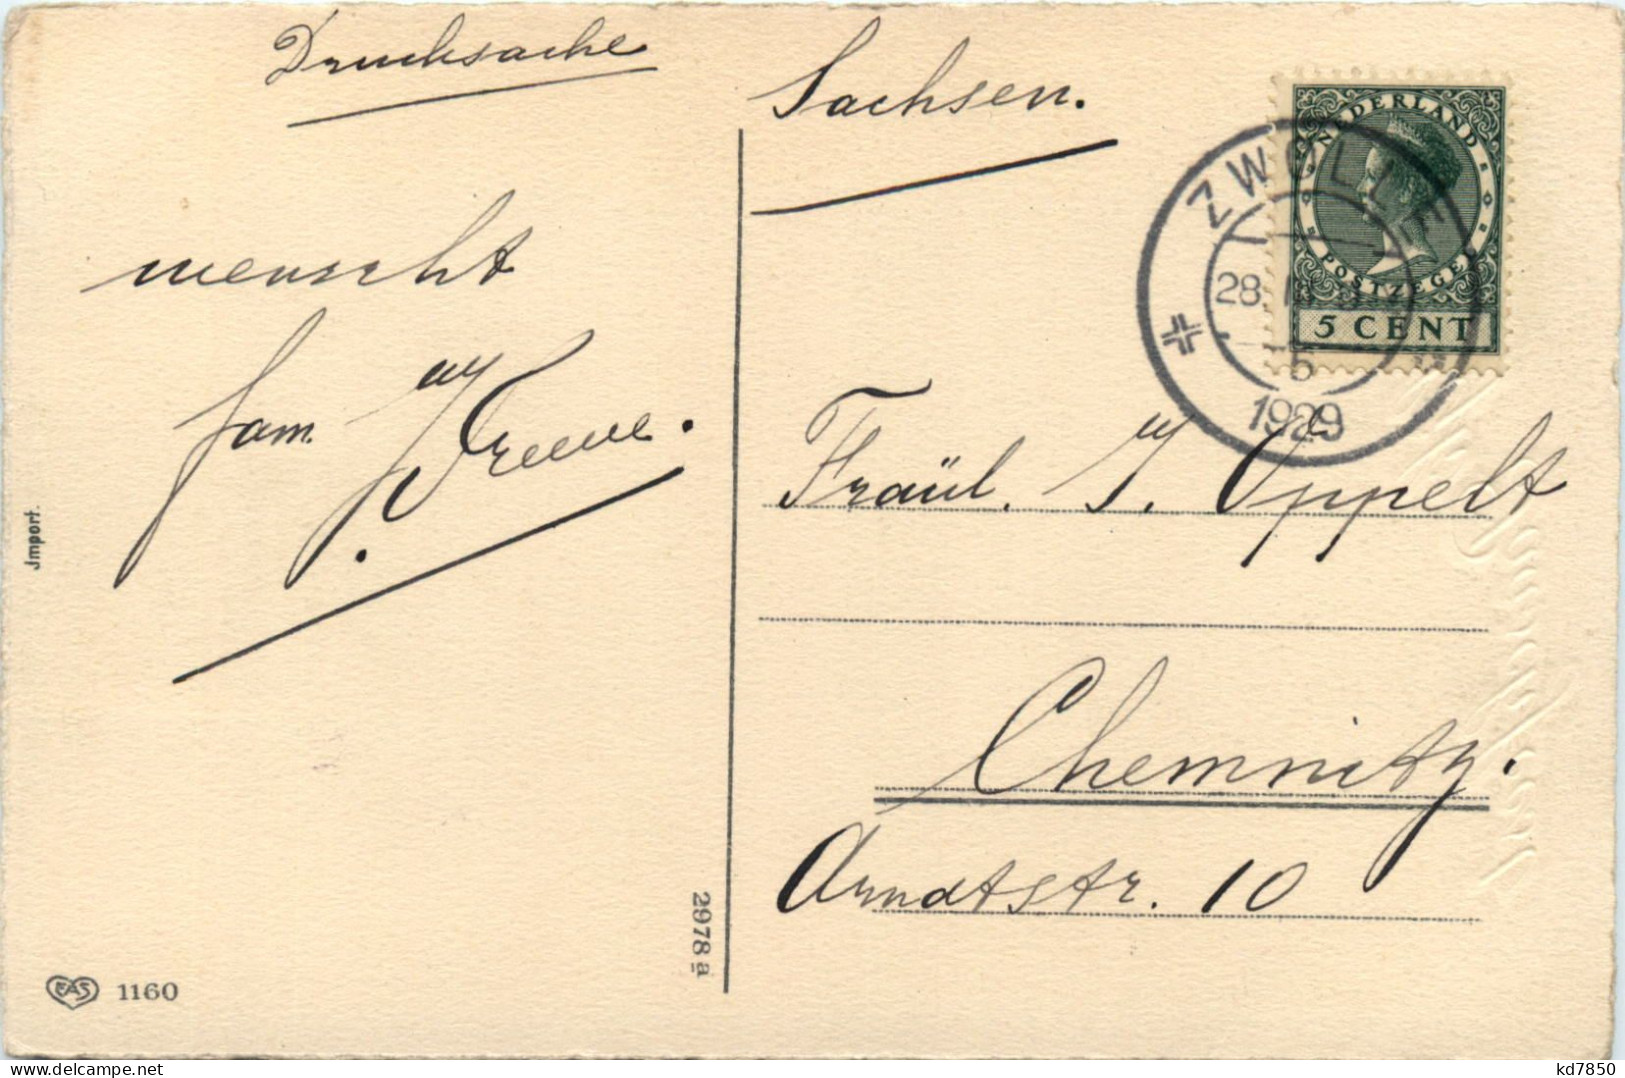 Drucksache
Sachsen.
wenscht
fam.
NEDERLAND
POSTZEGEL
5 CENT
ZWOLLE
28
5
1929
Fräül. J. Oppelt
Chemnitz.
Arndtstr. 10
Import.
2978 a
EAS 1160
kd7850